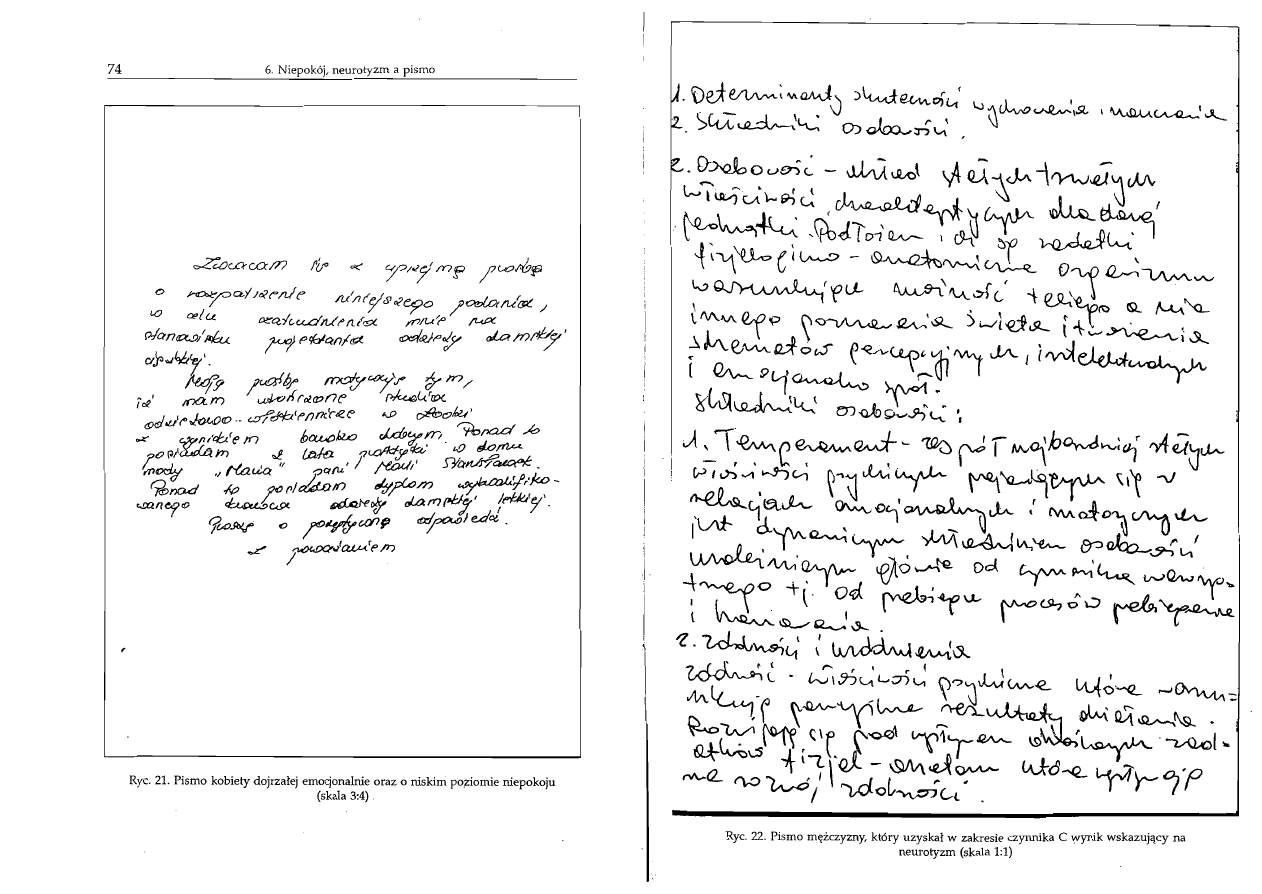 74
6. Niepokój, neurotyzm a pismo
Zwracam się z uprzejmą prośbą
o rozpatrzenie niniejszego podania,
w celu zatrudnienia mnie na
stanowisku projektanta odzieży damskiej
ciężkiej.
Moją prośbę motywuję tym,
iż mam ukończone studia
odzieżowo-włókiennicze w Łodzi
z wynikiem bardzo dobrym. Ponad to
posiadam 2 lata praktyki w domu
mody „Maria" pani Marii
Ponad to posiadam dyplom wykwalifiko-
wanego krawca odzieży damskiej lekkiej.
Proszę o pozytywną odpowiedź.
z poważaniem
Ryc. 21. Pismo kobiety dojrzałej emocjonalnie oraz o niskim poziomie niepokoju
(skala 3:4)
1. Determinanty skuteczności wychowania i nauczania
2. Składniki osobowości.
2. Osobowość - układ stałych trwałych
właściwości charakterystycznych dla danej
jednostki. Podłożem są zadatki
fizjologiczno - anatomiczne organizmu
warunkujące możność takiego a nie
innego poznawania świata i tworzenia
schematów percepcyjnych, intelektualnych
i emocjonalno społ.
składniki osobowości:
1. Temperament - zespół najbardziej stałych
właściwości psychicznych pojawiających się w
relacjach emocjonalnych i motorycznych
jest dynamicznym składnikiem osobowości
uzależnionym głównie od czynników wewnę-
trznego tj. od przebiegu procesów pobudzania
i hamowania.
2. Zdolności i uzdolnienia
zdolność - właściwości psychiczne które warun=
kują pomyślne rezultaty działania.
Rozwijają się pod wpływem określonych zad-
atków fizjol - anatom które wpływają
na rozwój zdolności.
Ryc. 22. Pismo mężczyzny, który uzyskał w zakresie czynnika C wynik wskazujący na
neurotyzm (skala 1:1)